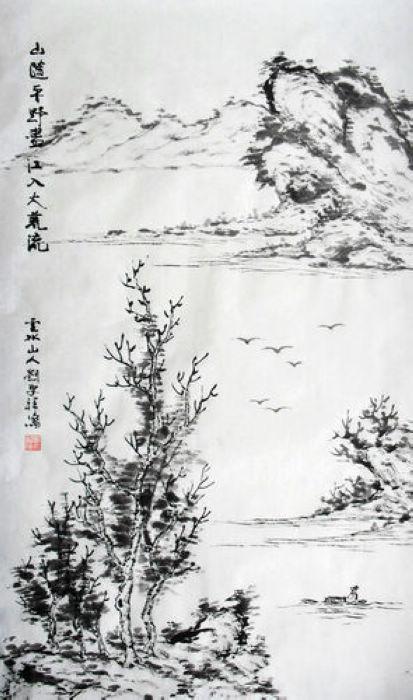 山隨平野盡 江入大荒流
山人劉